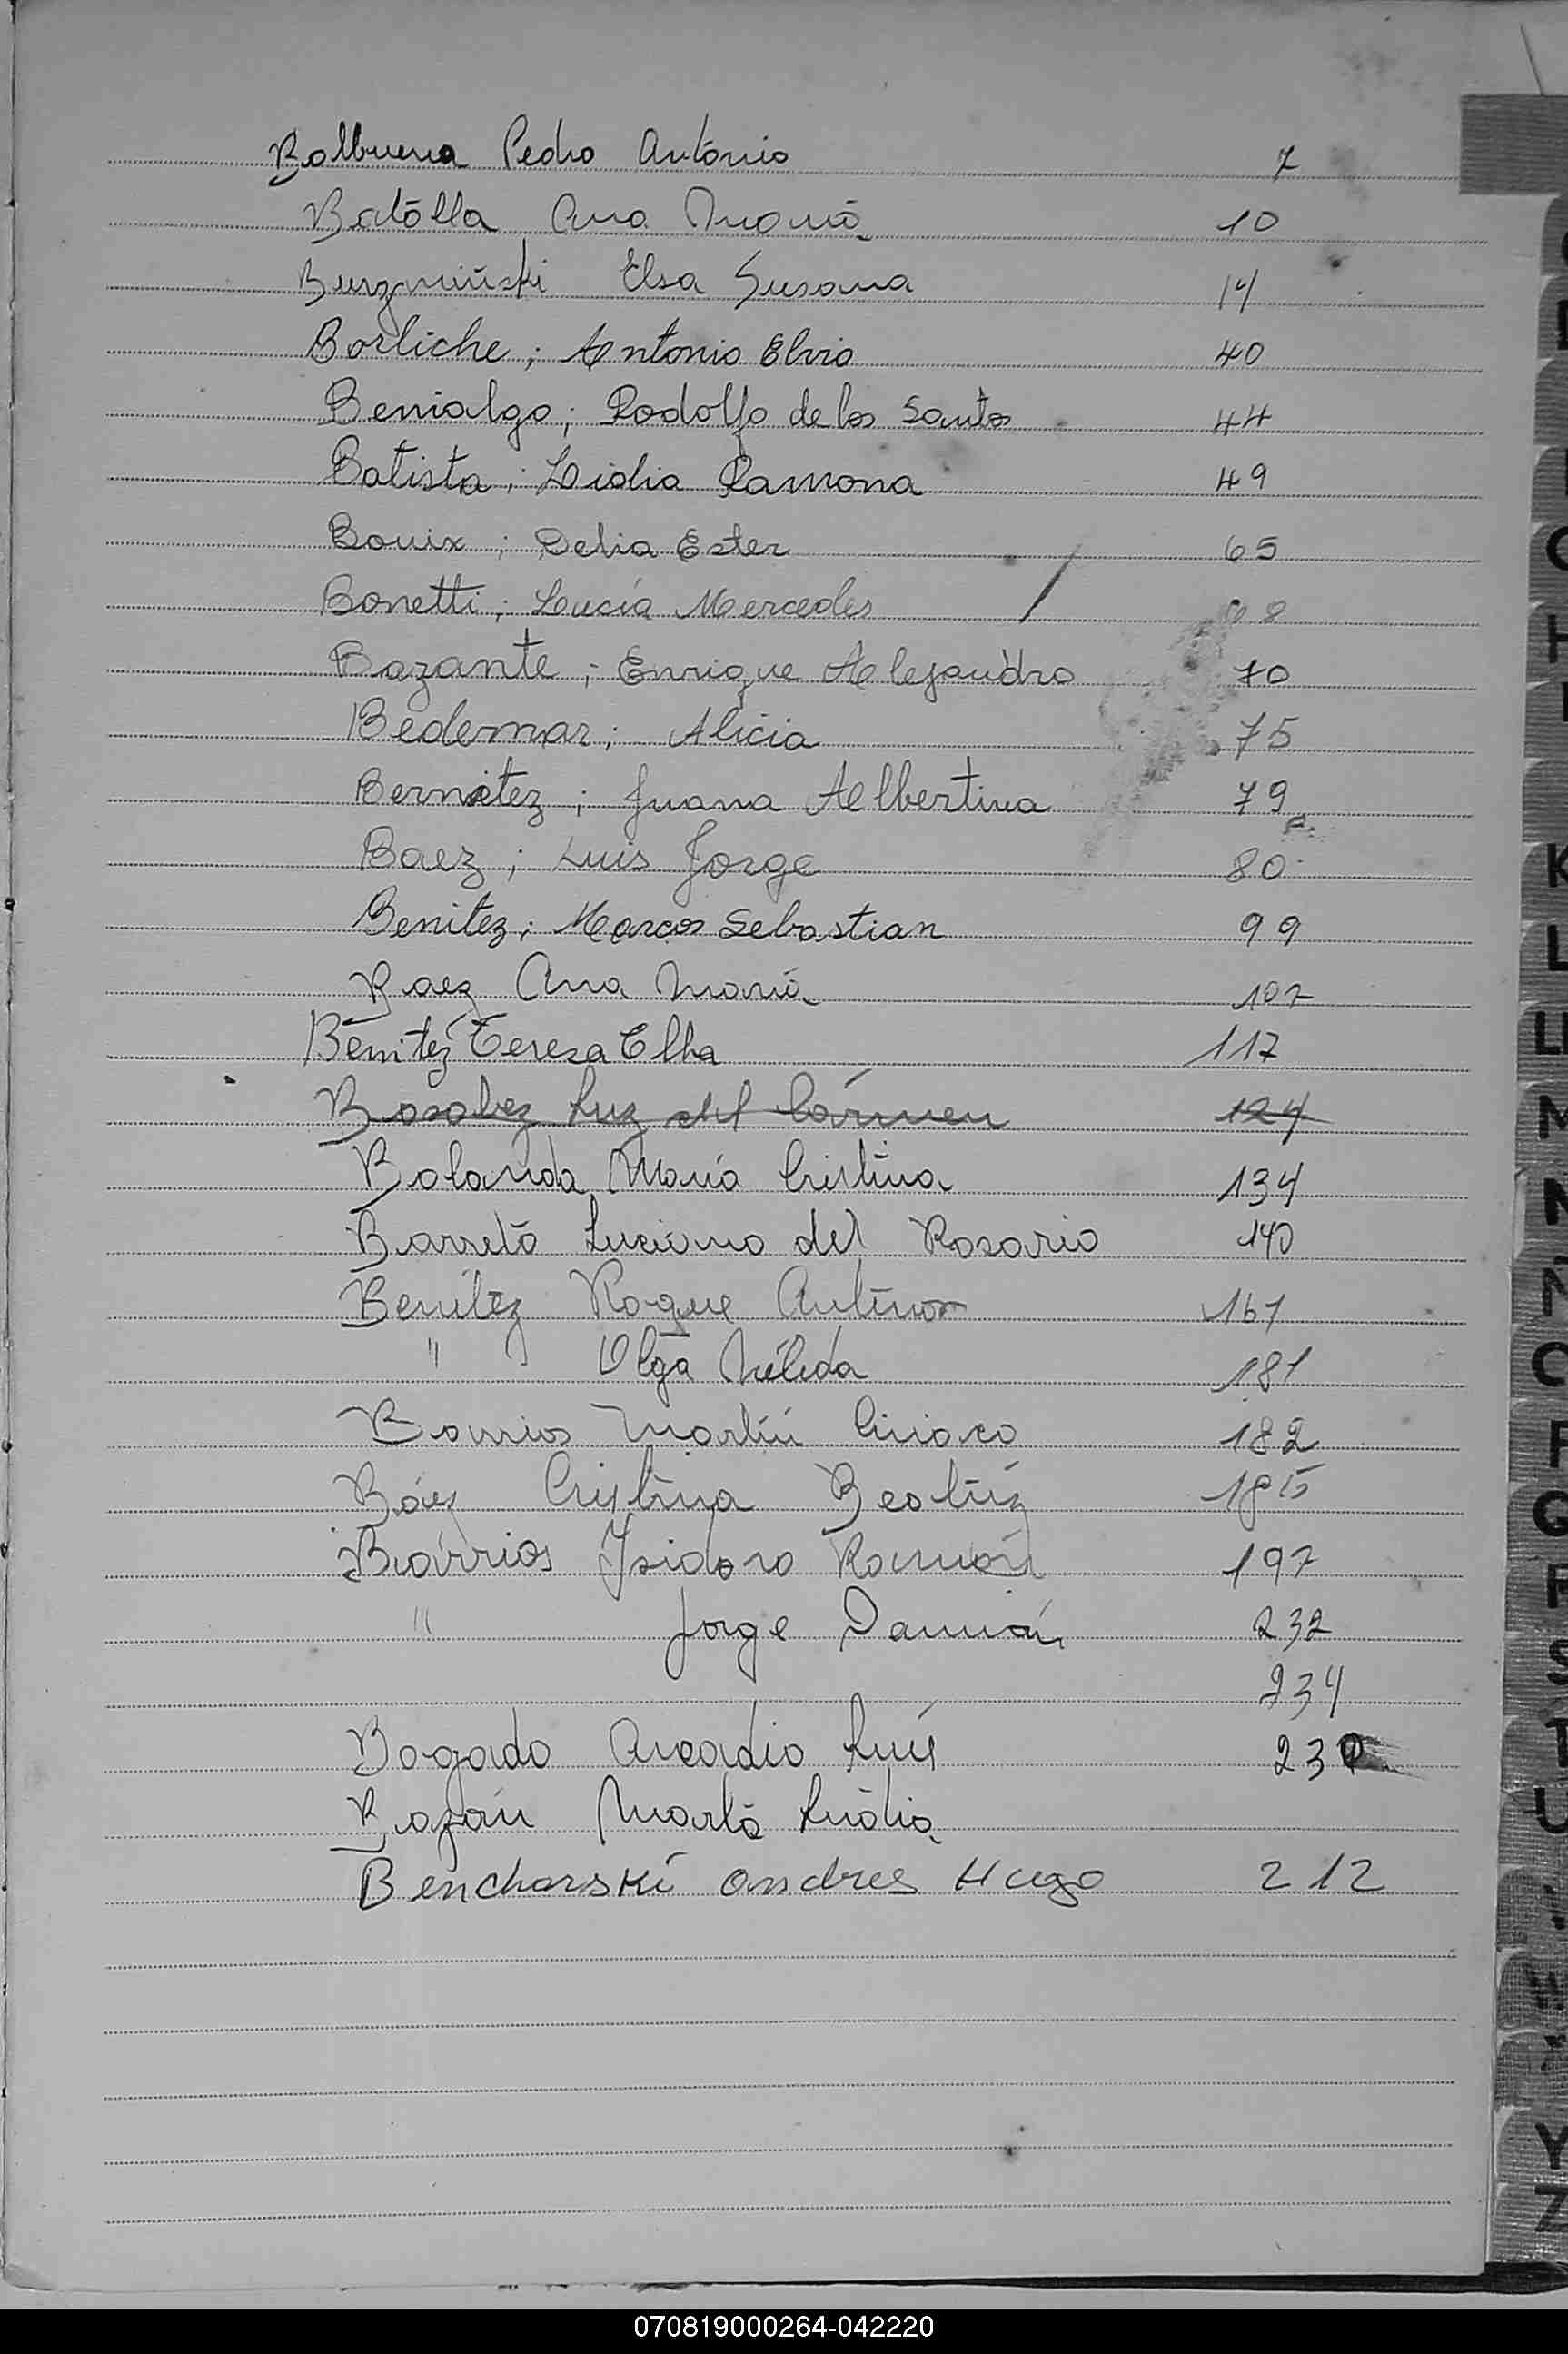 Balbuena Pedro Antonio 7
Batálla Ana María 10
Burzmiński Elsa Susana 14
Borliche; Antonio Elvio 40
Benialgo; Rodolfo de los Santos 44
Batista; Lidia Ramona 49
Bouix; Delia Ester 65
Bonetti; Lucía Mercedes 68
Bazante; Enrique Alejandro 70
Bedemar; Alicia 75
Bernitez; Juana Albertina 79
Baez; Luis Jorge 80
Benitez; Marcos Sebastian 99
Baez Ana María 107
Benitez Teresa Elba 117
Basabez Luz del Cármen 124
Bolanda María Cristina 134
Barreto Luciano del Rosario 140
Benitez Roque Antenor 161
" Olga Nélida 181
Barrios Martín Ciriaco 182
Báez Cristina Beatríz 185
Bárrios Isidoro Ramón 197
" Jorge Damián 232
234
Bogado Arcadio Luís 230
Bazán Marta Lidia
Bencharski Andres Hugo 212
A
C
H
I
K
L
LL
M
N
Ñ
O
P
Q
R
S
T
U
Y
Z
070819000264-042220